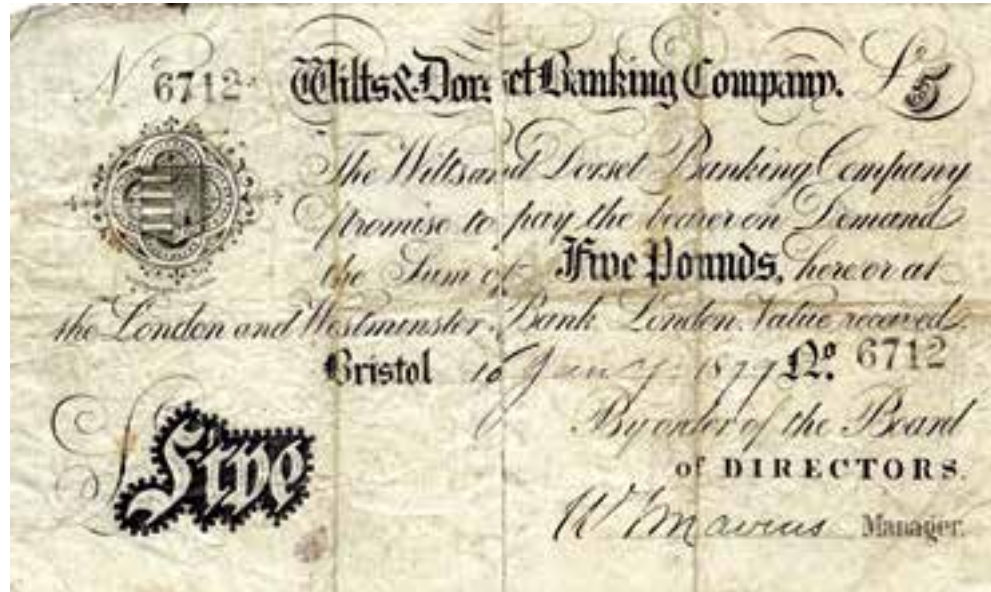 No 6712 Wilts & Dorset Banking Company. £5
The Wilts and Dorset Banking Company
promise to pay the bearer on Demand
the Sum of Five Pounds, here or at
the London and Westminster Bank London. Value received.
Bristol 16 Jany. 1877 No. 6712
By order of the Board
of DIRECTORS.
£Five
Manager.